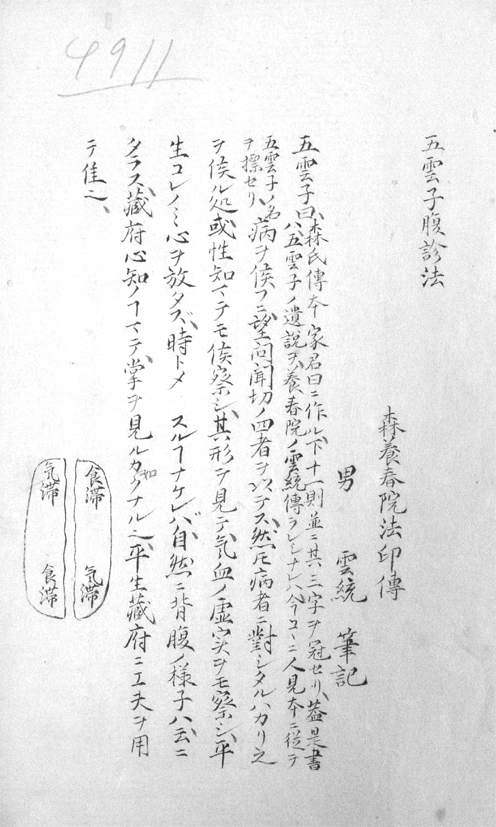 4911
五雲子腹診法
森養春院法印傳
男 雲統 筆記
五雲子曰森氏傳本家君曰ニ作ル下十一則並ニ其三字ヲ冠セリ蓋是書
ハ五雲子ノ遺説ヲ養春院ノ雲統傳ラレシナレハ今コヽニ人見本ニ従テ
五雲子ノ名
ヲ標セリ
病ヲ候フニ望問聞切ノ四者ヲ以テス然𪜈病者ニ對シタルハカリ之
ヲ候ル処或性知マテモ候察シ其形ヲ見テ気血ノ虚実ヲモ察シ平
生コレノミ心ヲ放タズ時トメ スルヿナケレバ自然ニ背腹ノ様子ハ云ニ
タラス蔵府心知ノヿマテ掌ヲ見ルカ如クナル之平生蔵府ニ工夫ヲ用
テ佳之、
食滞 気滞
気滞 食滞